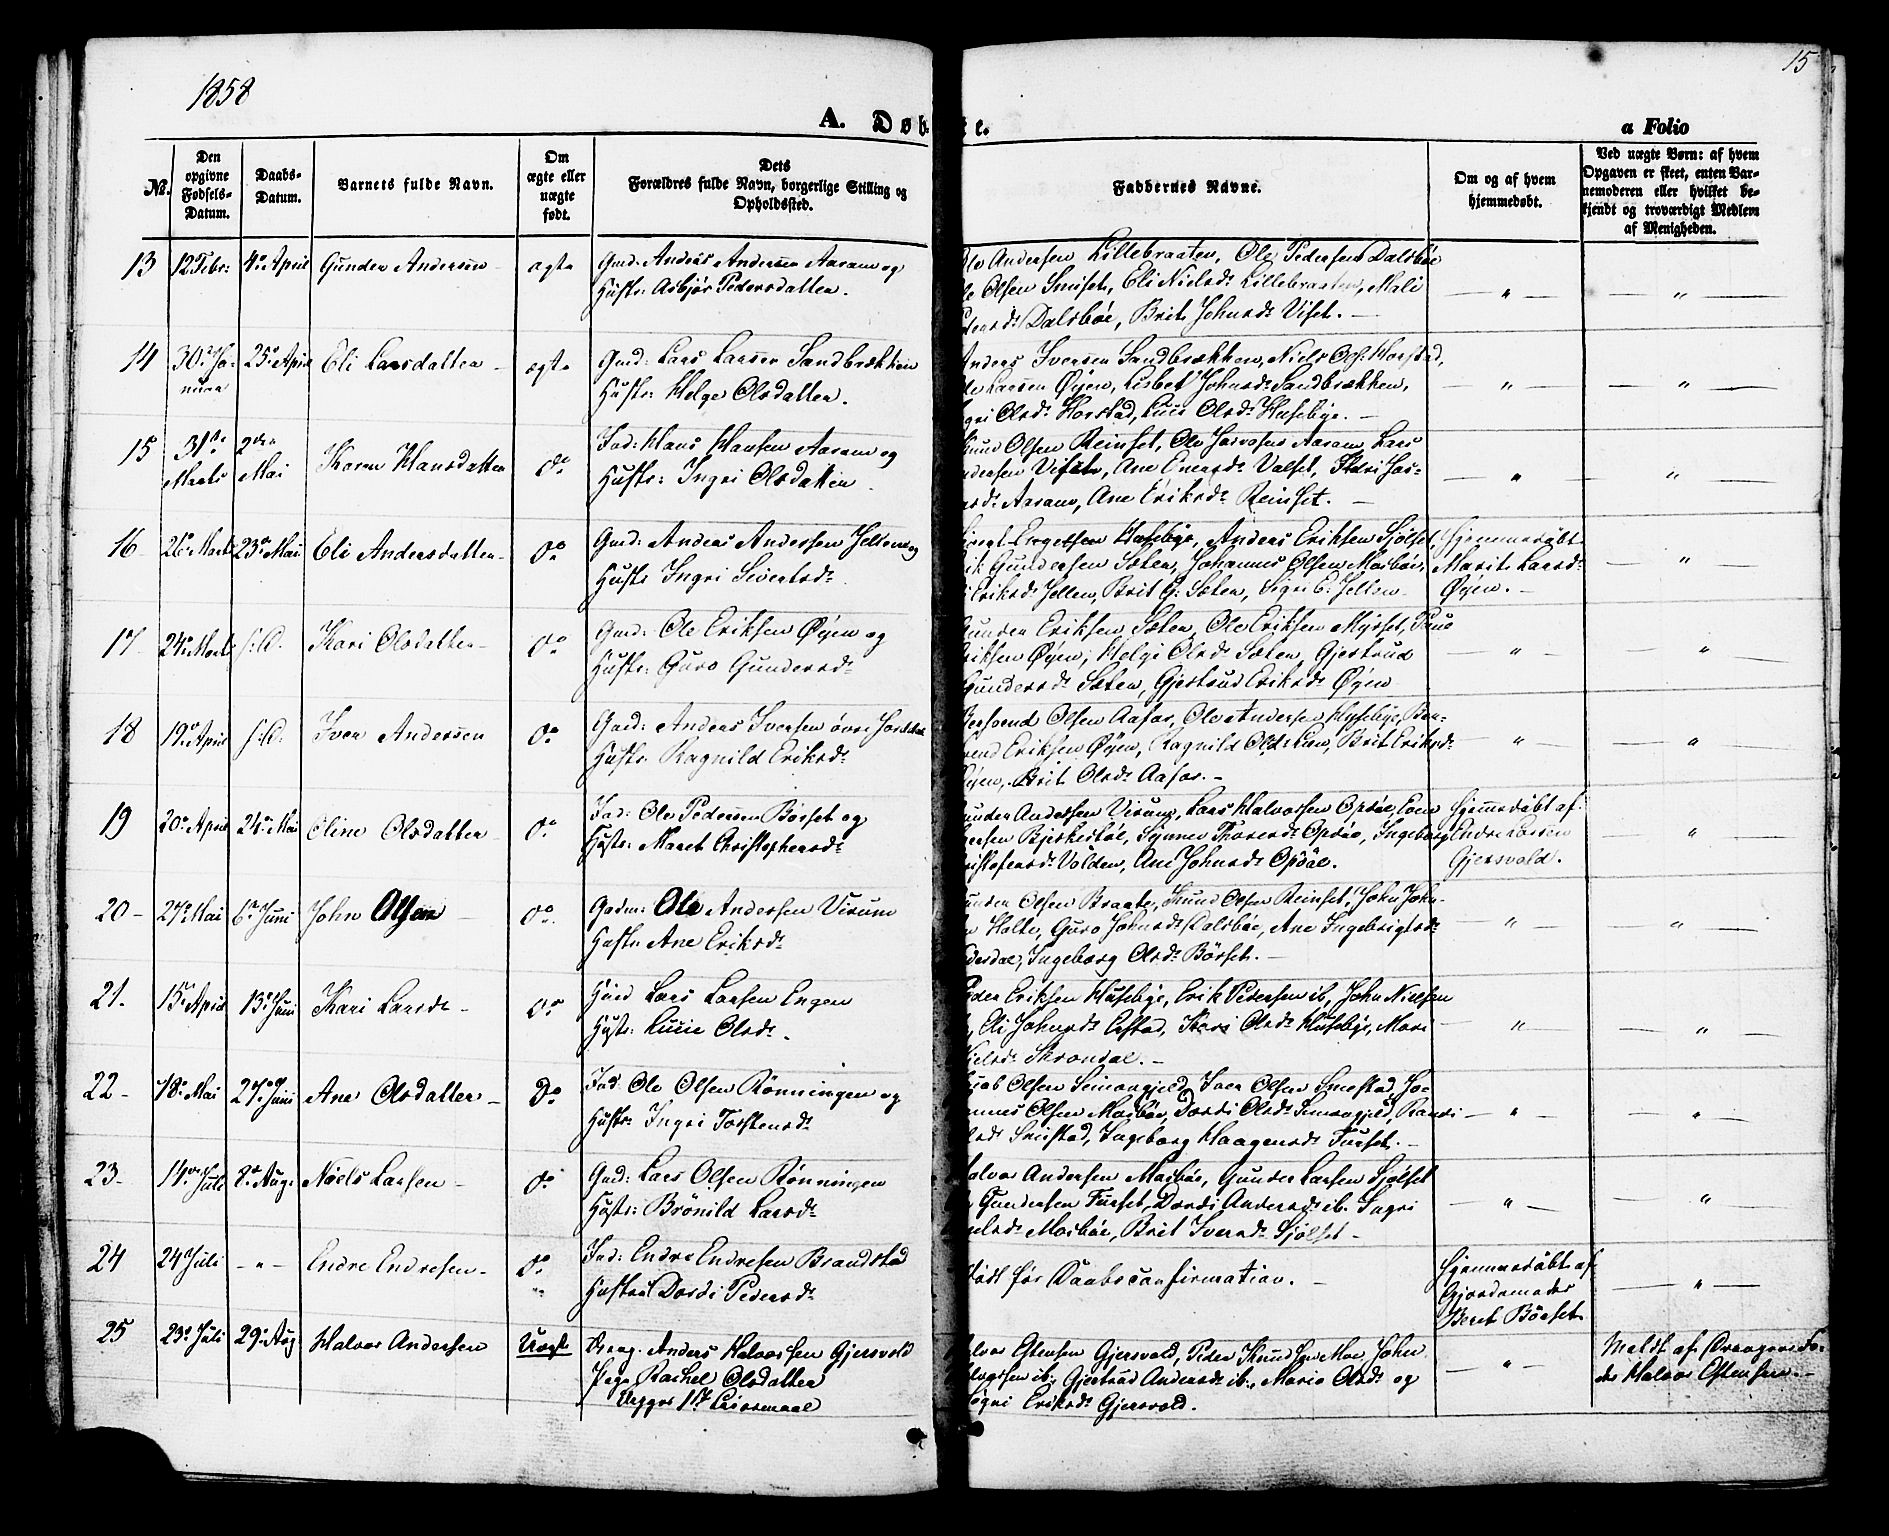 1858
15
A. Døb
te.
a Folio
No.
Den opgivne Fødsels-Datum.
Daabs-Datum.
Barnets fulde Navn.
Om ægte eller uægte født.
Dets Forældres fulde Navn, borgerlige Stilling og Opholdssted.
Faddernes Navne.
Om og af hvem hjemmedøbt.
Ved uægte Børn: af hvem Opgaven er skeet, enten Barnemoderen eller hvilket bekjendt og troværdigt Medlem af Menigheden.
13 12 Febr: 4de April Gunder Andersen ægte Gmd: Anders Andersen Aaram og
Hustr: Asbjør Pedersdatter.
Andersen Lillebraaten, Ole Pedersen Dalsböe
Olsen Smiset, Eli Nielsd: Lillebraaten, Mali
Dalsböe, Brit Johnsd: Viset. — " — — " —
14 30 Januar 25de April Eli Larsdatter ægte Gmd: Lars Larsen Sandbrækken
Hustr: Helge Olsdatter.
Anders Iversen Sandbrækken, Niels Ols: Horstad,
Larsen Øyen, Lisbet Johnsd: Sandbrækken,
Olsd: Horstad, Luci Olsd: Husebye. — " — — " —
15 31te Marts 2den Mai Karen Hansdatter do Ind: Hans Hansen Aaram og
Hustr: Ingri Olsdatter
Knud Olsen Reinset, Ole Aaram, Lars
Ane Einersd: Valset,
Aaram, Ane Eriksd: Reinset. — " — — " —
16 26de Marts 23de Mai Eli Andersdatter Do Gmd: Anders Andersen Jelten og
Hustr: Ingri Sivertsd:
Husebye, Anders Eriksen Sjølset, Hjemmedöbt
Gundersen Sæter, Johannes Olsen Mosböe, Marit Larsd:
Eriksd: Jelten, Brit G: Sæter, Sigri E: Jelten Øyen. — — " —
17 24de Marts s: D. Kari Olsdatter Do Gmd: Ole Eriksen Øyen og
Hustr: Guro Gundersd:
Gunder Eriksen Sæter, Ole Eriksen Myrset, Paul
Eriksen Øyen, Helgi Olsd: Sæter, Gjertrud
Gundersd: Sæter, Gjertrud Eriksd: Øyen — " — — " —
18 19de April s: D. Iver Andersen Do Gmd: Anders Iversen övre
Hustr: Ragnild Eriksd:
Olsen Aafar, Ole Andersen Husebye, Ber-
Eriksen Øyen, Ragnild Brit Eriksd:
Øyen, Brit Olsd: Aafar. — " — — " —
19 20de April 24de Mai Eline Olsdatter Do Ind: Ole Pedersen Börset og
Hustr: Maret Christophersd:
Gunder Andersen Visum, Lars Halvorsen Opdöe, Hjemmedöbt af
Bjerkestöl, Synnev Thoresd: Opdöe, Ingeborg Endre Larsen
Volden, Ane Johnsd: Opdöe. Gjersvold. — " —
20 27de Mai 6te Juni John Olsen Do Gmd: Ole Andersen Visum
Hustr: Ane Eriksd:
Gunder Olsen Braate, Knud Olsen Reinset, John John-
Holte, Guro Johnsd: Dalsböe, Ane Ingebrigtsd:
Ingeborg Olsd: Börset. — " — — " —
21. 15de April 13de Juni Kari Larsd: Do Lars Larsen Engen
Hustr: Lucie Olsd:
Peder Eriksen Husebye, Erik Pedersen ib, John Nielsen
Eli Johnsd: Kari Olsd: Husebye, Mari
Nielsd: Skrondal. — " — — " —
22 18de Mai 27de Juni Ane Olsdatter Do Ind: Ole Olsen Rönningen og
Hustr: Ingri Torstensd:
Olsen Simongjeld, Iver Olsen Smestad, Jo-
Olsen Mosböe, Dordi Olsd: Simongjeld, Randi
Smestad, Ingeborg Haagensd: Furset. — " — — " —
23 14de Juli 8de Aug: Niels Larsen Do Gmd: Lars Olsen Rönningen
Hustr: Brönild Larsd:
Halvor Andersen Mosböe, Gunder Larsen Sjölset
Gundersen Furset, Dordi Andersd: ib. Ingri
Mosböe, Brit Iversd: Sjölset — " — — " —
24 24 Juli — " — Endre Endresen Do Ind: Endre Endresen Brandstad
Hustru Dordi Pedersd:
Död för Daabsconfirmation. — Hjemmedöbt af
Gjordemoder
Beret Börset — " —
25 23de Juli 29de Aug Halvor Andersen Uægt Ungk. Anders Halvorsen Gjersvold
Pige Rachel Olsdatter
Begges 1ste Leiermaal
Halvor Estensen Gjersvold, Peder Knudsen Moe, John
ib, Gjertrud Andersd: ib., Marie Olsd: og
Eriksd: Gjersvold. — " — Meldt af Drengens Fa-
der Halvor Estensen. —